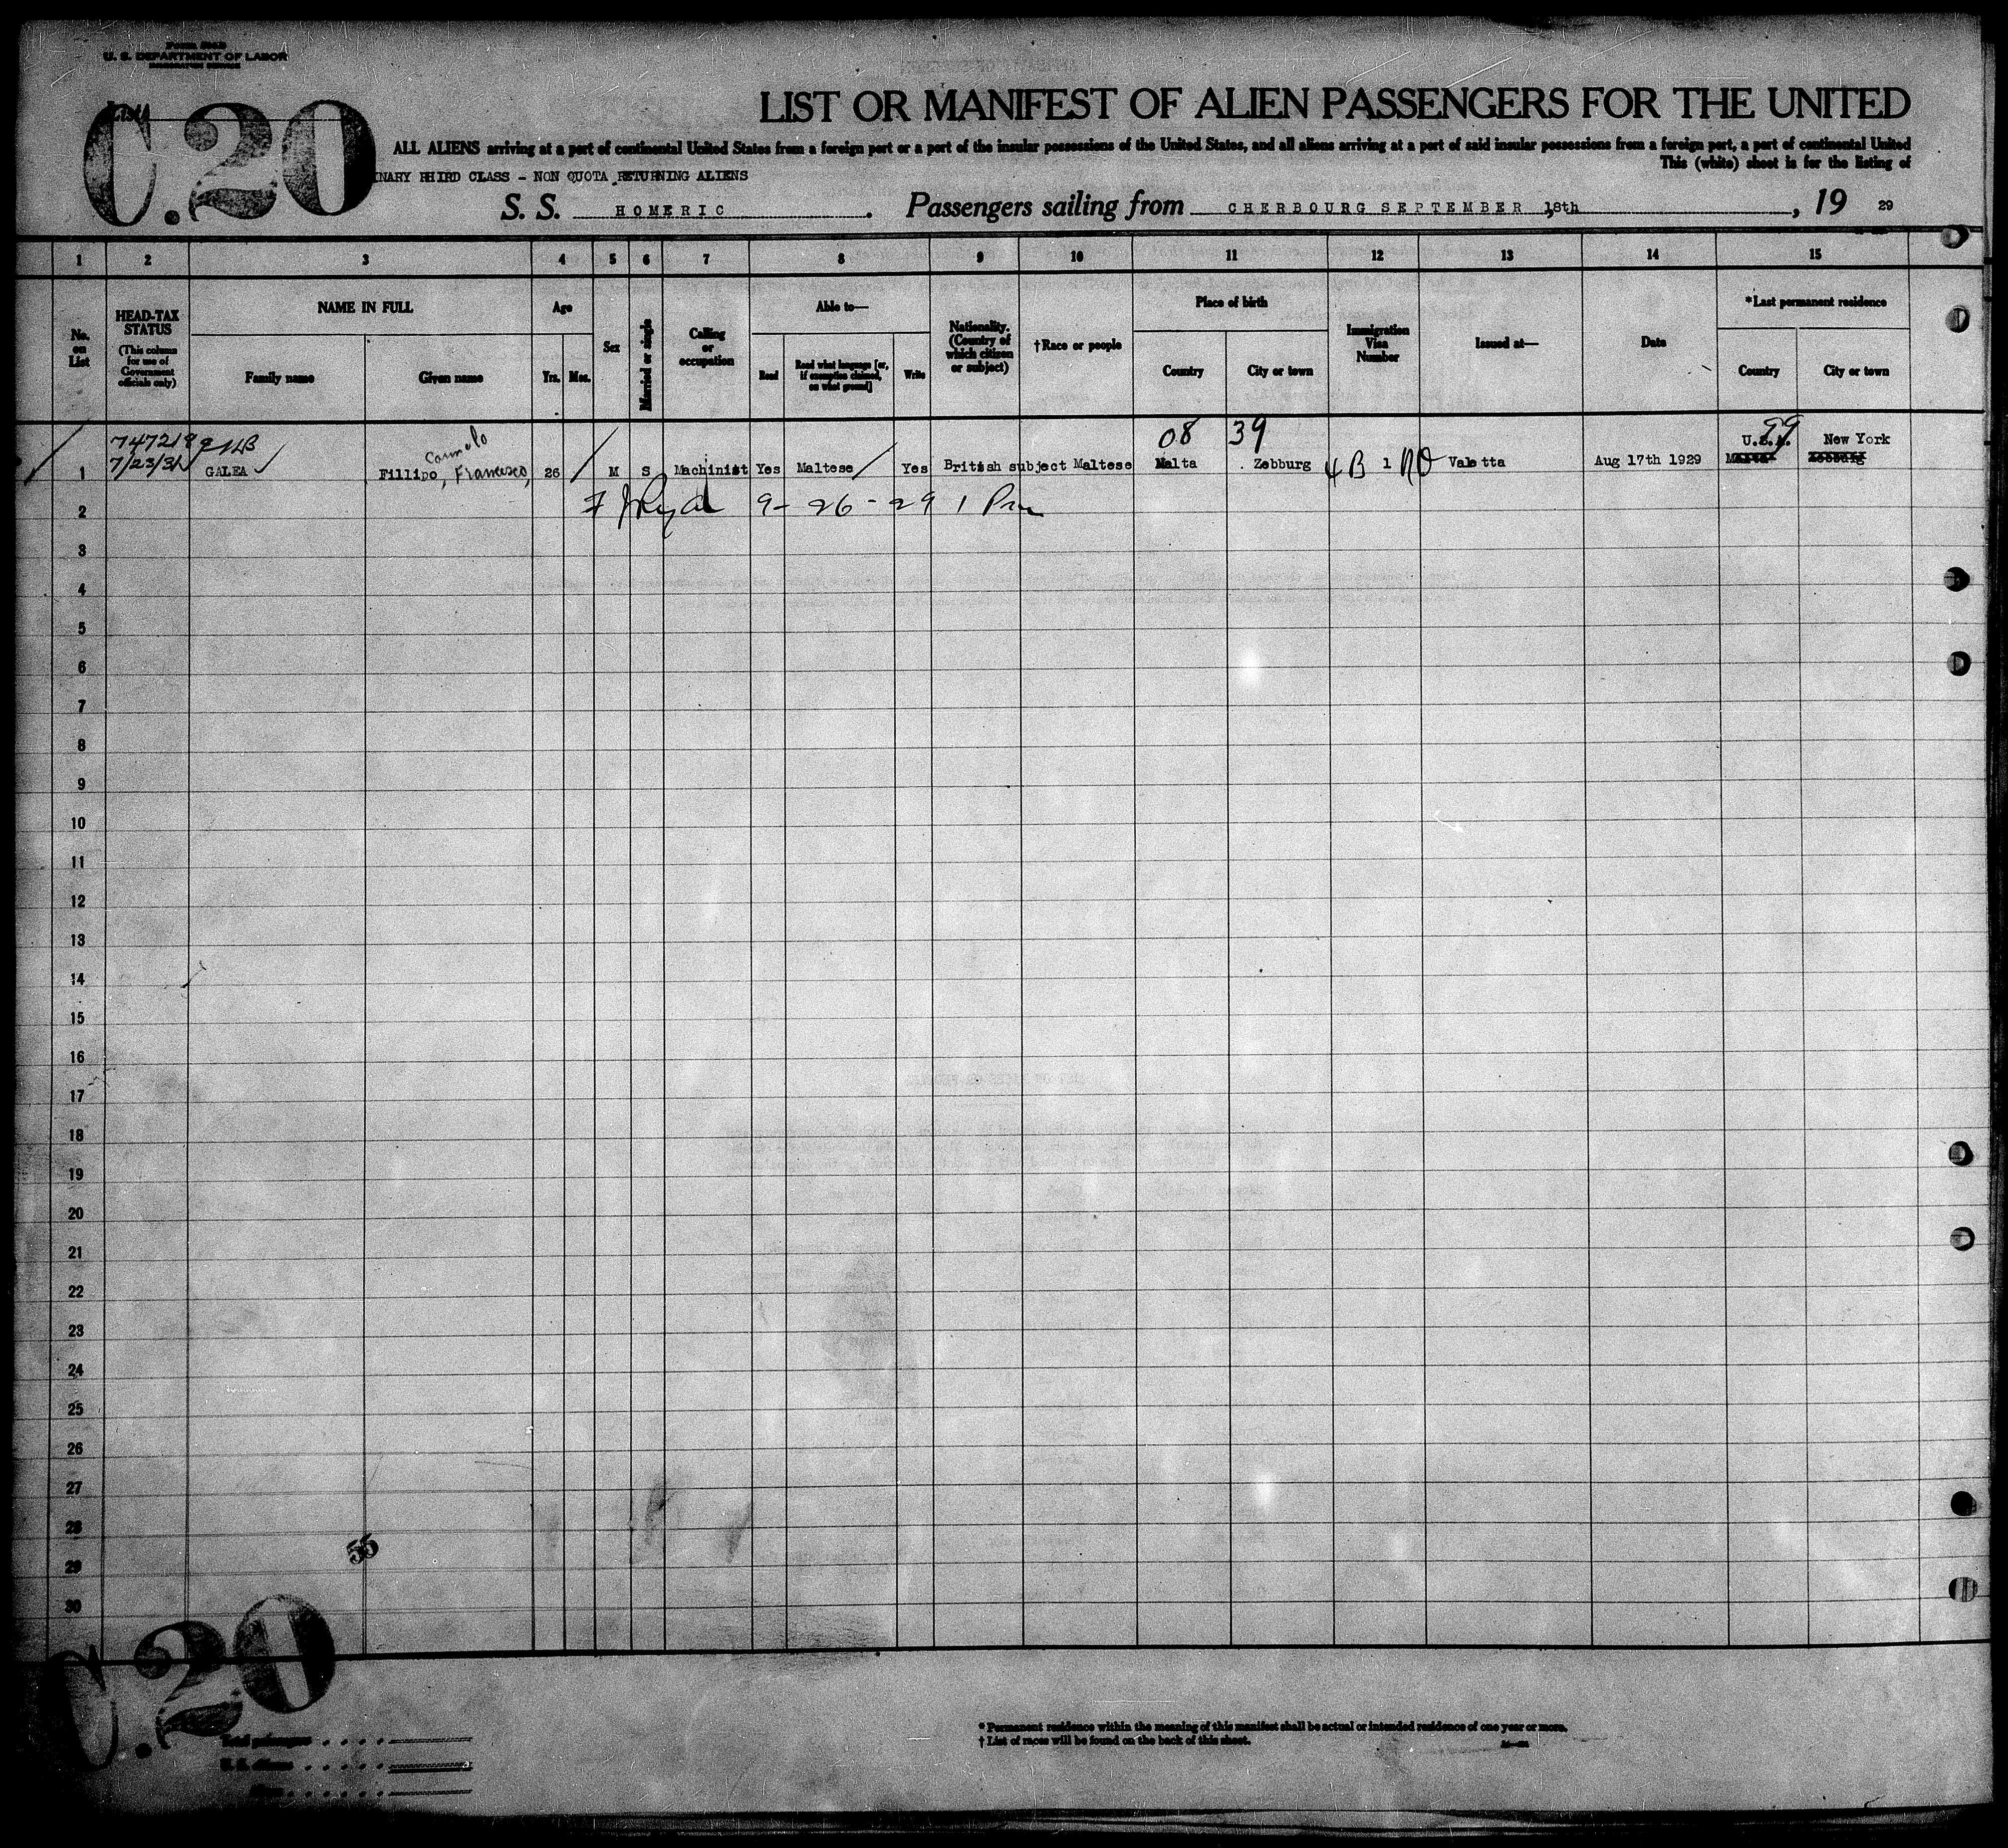 U. S. DEPARTMENT OF LABOR
List
C.20
LIST OR MANIFEST OF ALIEN PASSENGERS FOR THE UNITED
ALL ALIENS arriving at a port of continental United States from a foreign port or a port of the insular possessions of the United States, and all aliens arriving at a port of said insular possessions from a foreign port, a port of continental United
This (white) sheet is for the listing of
INARY THIRD CLASS - NON QUOTA RETURNING ALIENS
S. S. HOMERIC. Passengers sailing from CHERBOURG SEPTEMBER 18th, 19 29
1 2 3 4 5 6 7 8 9 10 11 12 13 14 15
No. on List
HEAD-TAX STATUS (This column for use of Government officials only)
NAME IN FULL
Family name Given name
Age
Yrs. Mos.
Sex
Married or single
Calling or occupation
Able to—
Read Read what language [or, if exemption claimed, on what ground] Write
Nationality. (Country of which citizen or subject)
†Race or people
Place of birth
Country City or town
Immigration Visa Number
Issued at—
Date
*Last permanent residence
Country City or town
747218 08 39 99
Carmelo U.S.A. New York
7/23/31
1 GALEA Fillipo, Francesco, 26 M S Machinist Yes Maltese Yes British subject Maltese Malta Zebburg 4B 1 NO Valetta Aug 17th 1929 Malta Zebburg
2 9-26-29 1 Pm
3
4
5
6
7
8
9
10
11
12
13
14
15
16
17
18
19
20
21
22
23
24
25
26
27
28
29
30
55
C.20
Total passengers
U. S. citizens
Aliens
* Permanent residence within the meaning of this manifest shall be actual or intended residence of one year or more.
† List of races will be found on the back of this sheet.